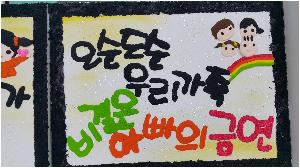 오순도순
우리가족
비결은
아빠의 금연
가